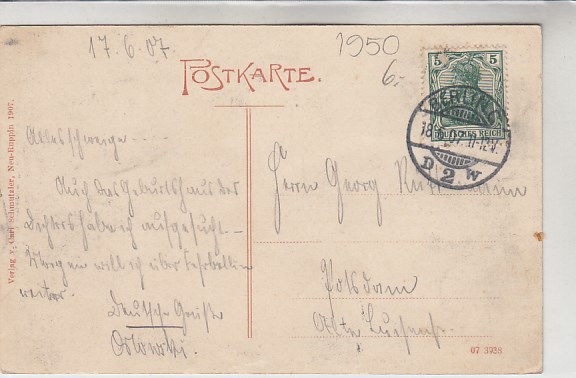 17.6.07.
1950
6.-
POSTKARTE.
5 5
DEUTSCHES REICH
BERLIN
18. 07. 11-12V.
2 W
Alles schweige ....
Auch das Geburtshaus des
Dichters habe ich aufgesucht. –
Morgen will ich über Fehrbellin
weiter.
Deutsche Grüße
Herrn Georg
Potsdam
Alte
Verlag v. Carl Schmutzler, Neu-Ruppin 1907.
07 3938